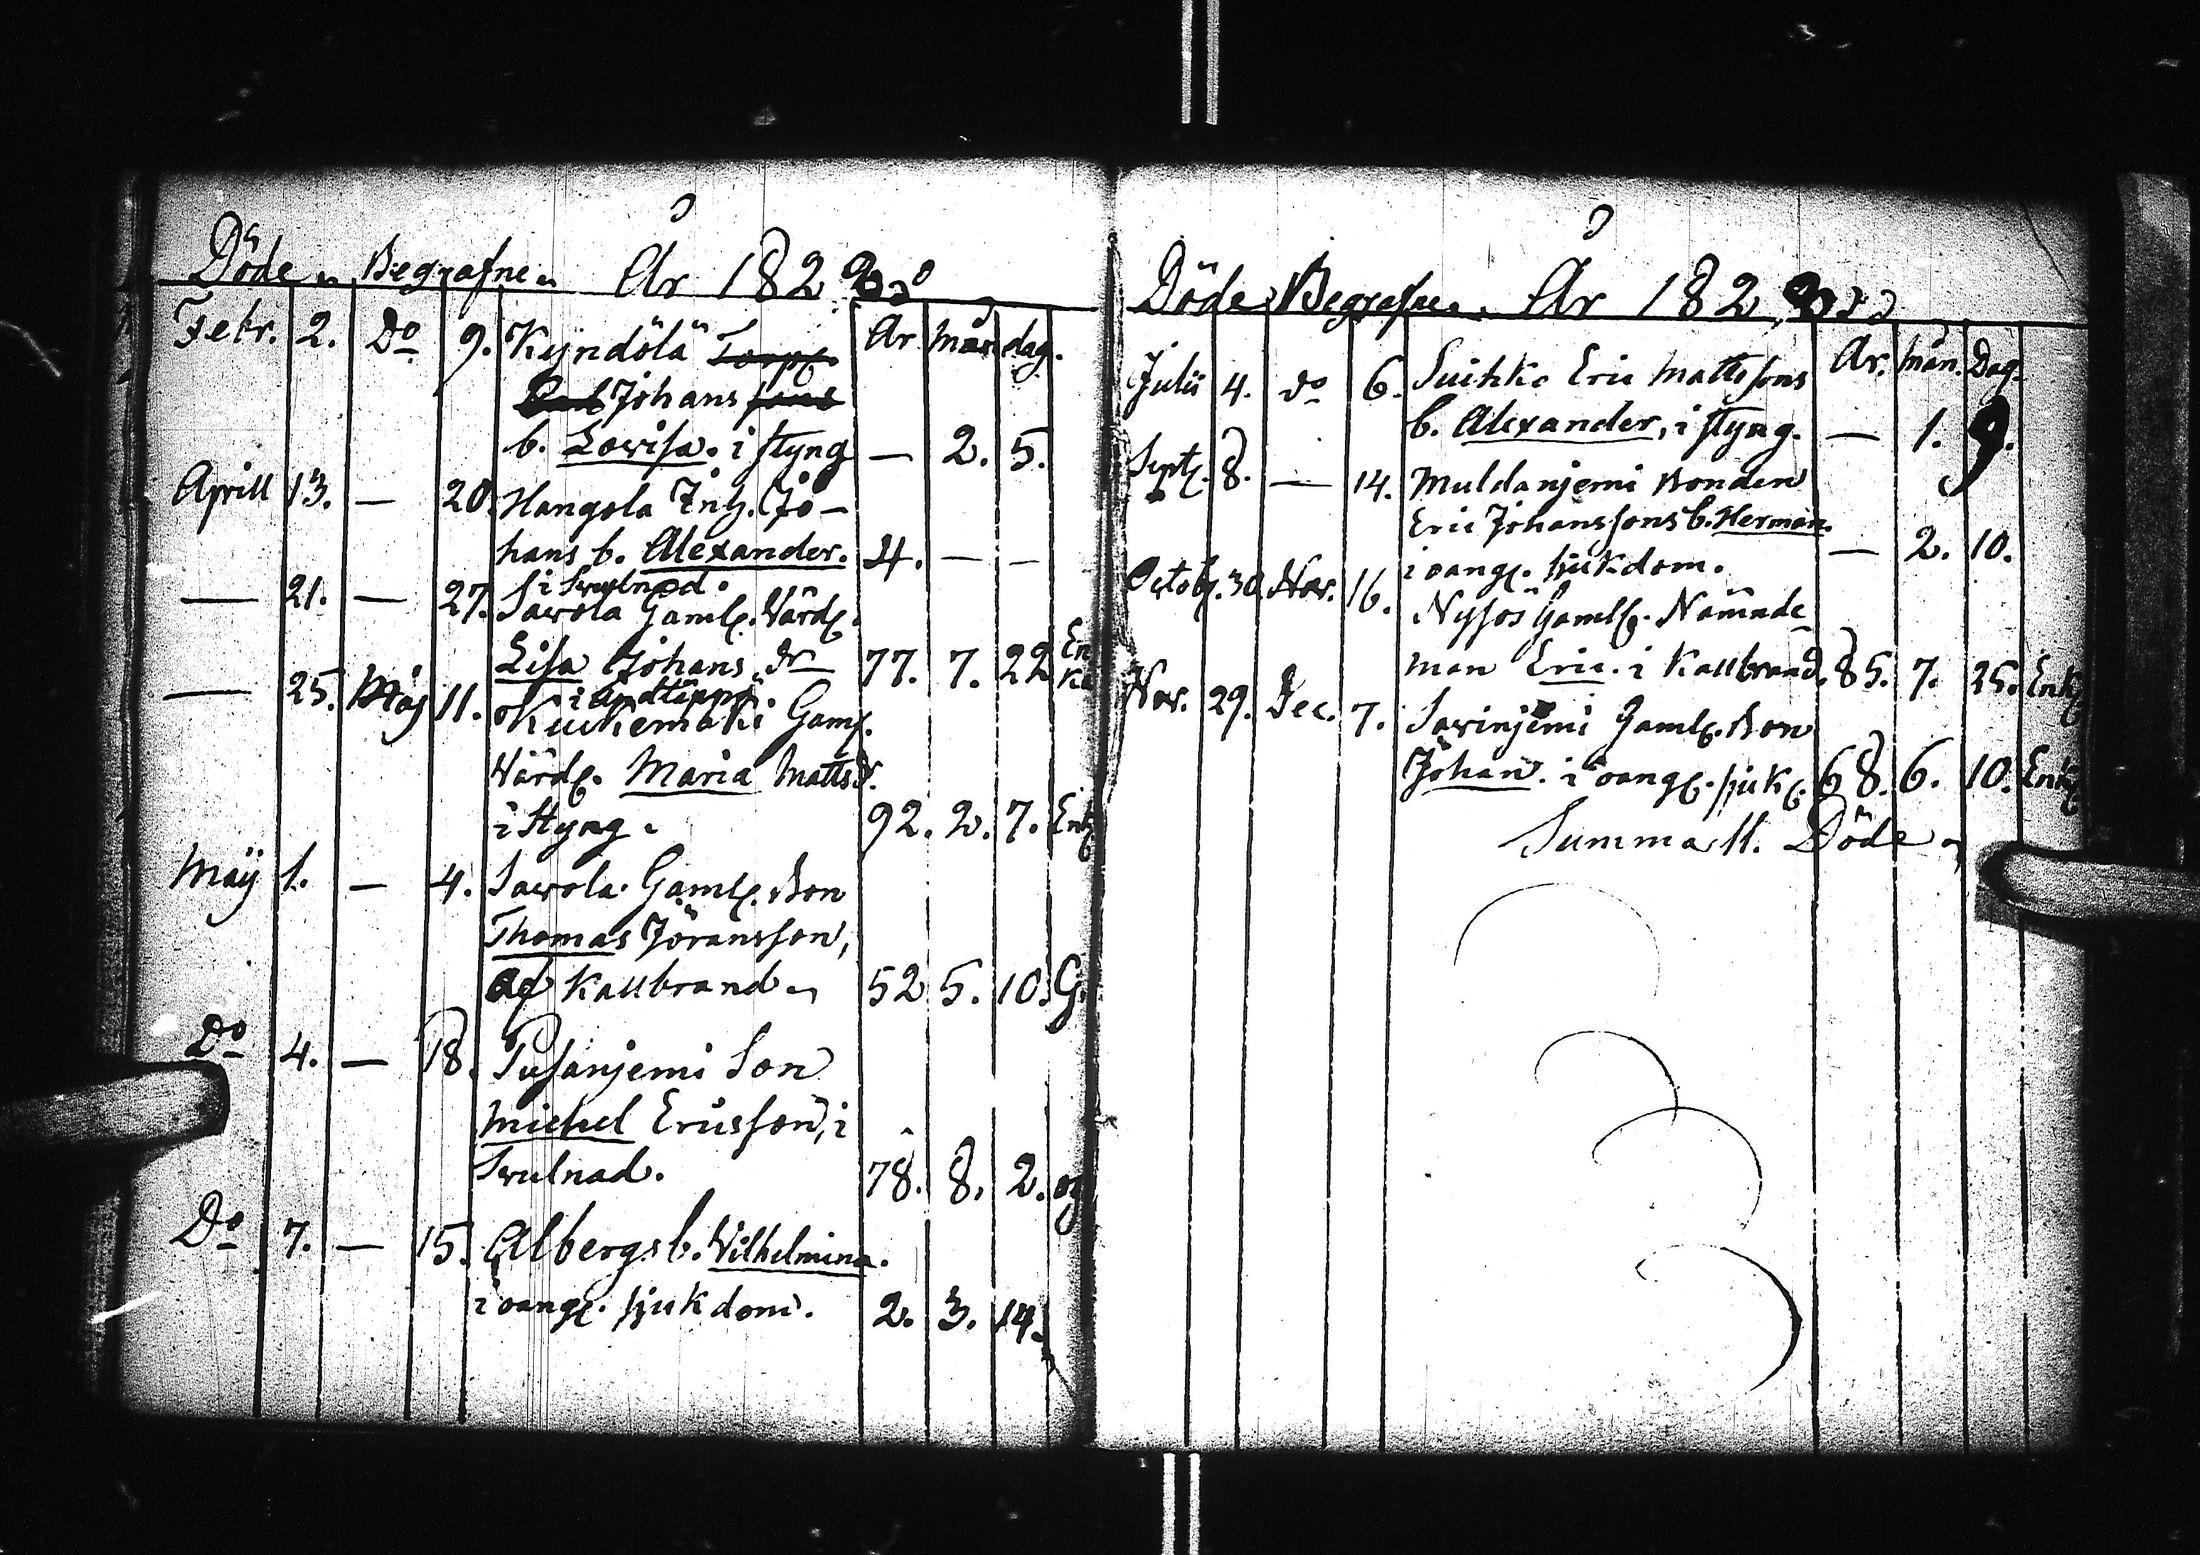 Döde Begrafne År 182
Febr. 2. Do 9. Kyndölä Torp. År mån dag.
Johans
b. Lovisa. i styng — 2. 5.
Aprill 13. — 20. Hangola Inh. Jo-
hans b. Alexander. 4. — —
i Swulnad.
— 21. — 27. Savola Gaml. Värd.
Lisa Johans dr 77. 7. 22 Enka
i Andtäppa.
— 25. Maj 11. Kuckemäki Gaml.
Värd. Maria Matts d.
i Styng. 92. 2. 7. Enk
Maij 1. — 4. Savola Gaml. Bon
Thomas Jöransson,
af Kallbrand 52 5. 10. G.
Do 4. — 18. Pusanjemi Son
Michel Ericsson, i
Swulnad. 78. 8. 2. og
Do 7. — 15. Albergs b. Wilhelmina.
i oang. sjukdom. 2. 3. 14.
Döde Begrafne. År 182
Julii 4. do 6. Suihko Eric Mattssons År. mån. Dag.
b. Alexander, i styng. — 1. 9.
Sept. 8. — 14. Muldanjemi Bonden
Eric Johanssons b. Herman.
i oang. sjukdom. — 2. 10.
Octob. 30. Nov. 16. Nysos Gaml. Nämnde
man Eric. i Kallbrand. 85. 7. 25. Enk
Nov. 29. Dec. 7. Savinjemi Gaml. Bon
Johan. i oang. sjuk. 68. 6. 10. Enk
Summa 11. Döde